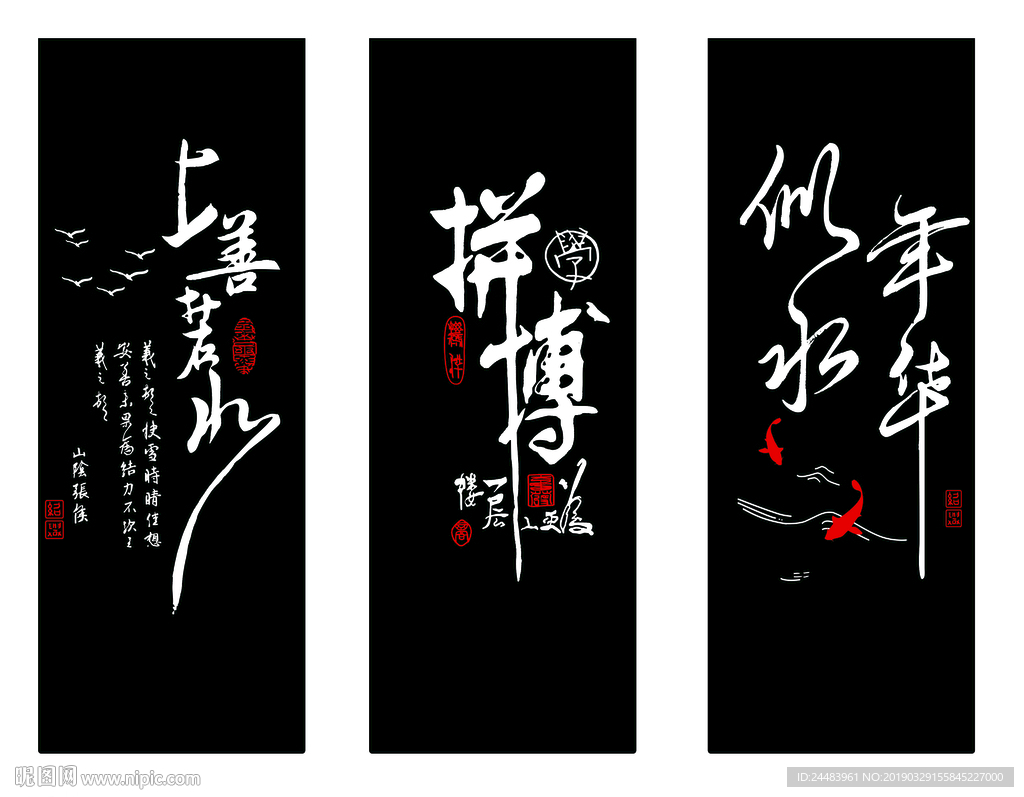 上善若水
羲之顿首快雪時晴佳想
安善未果為結力不次王
羲之顿首
山陰張侯
拼博
學
更上
一层
楼
似水
年华
昵图网 www.nipic.com
ID:24483961 NO:20190329155845227000